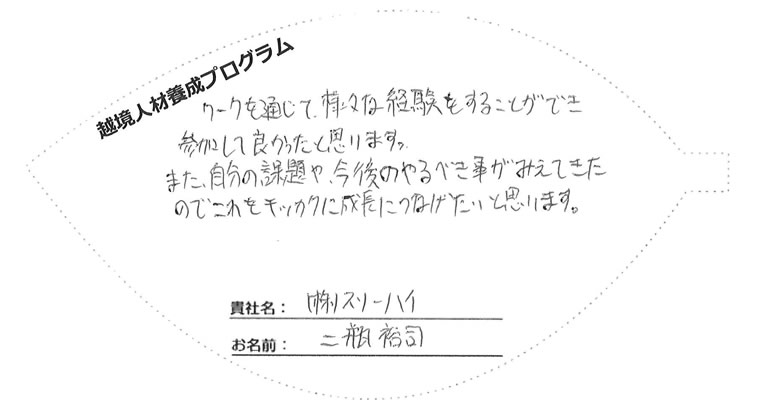 越境人材養成プログラム
ワークを通じて、様々な経験をすることができ
参加して良かったと思います。
また、自分の課題や、今後のやるべき事がみえてきた
のでこれをキッカケに成長につなげたいと思います。
貴社名： ㈱スリーハイ
お名前： 二瓶 裕司